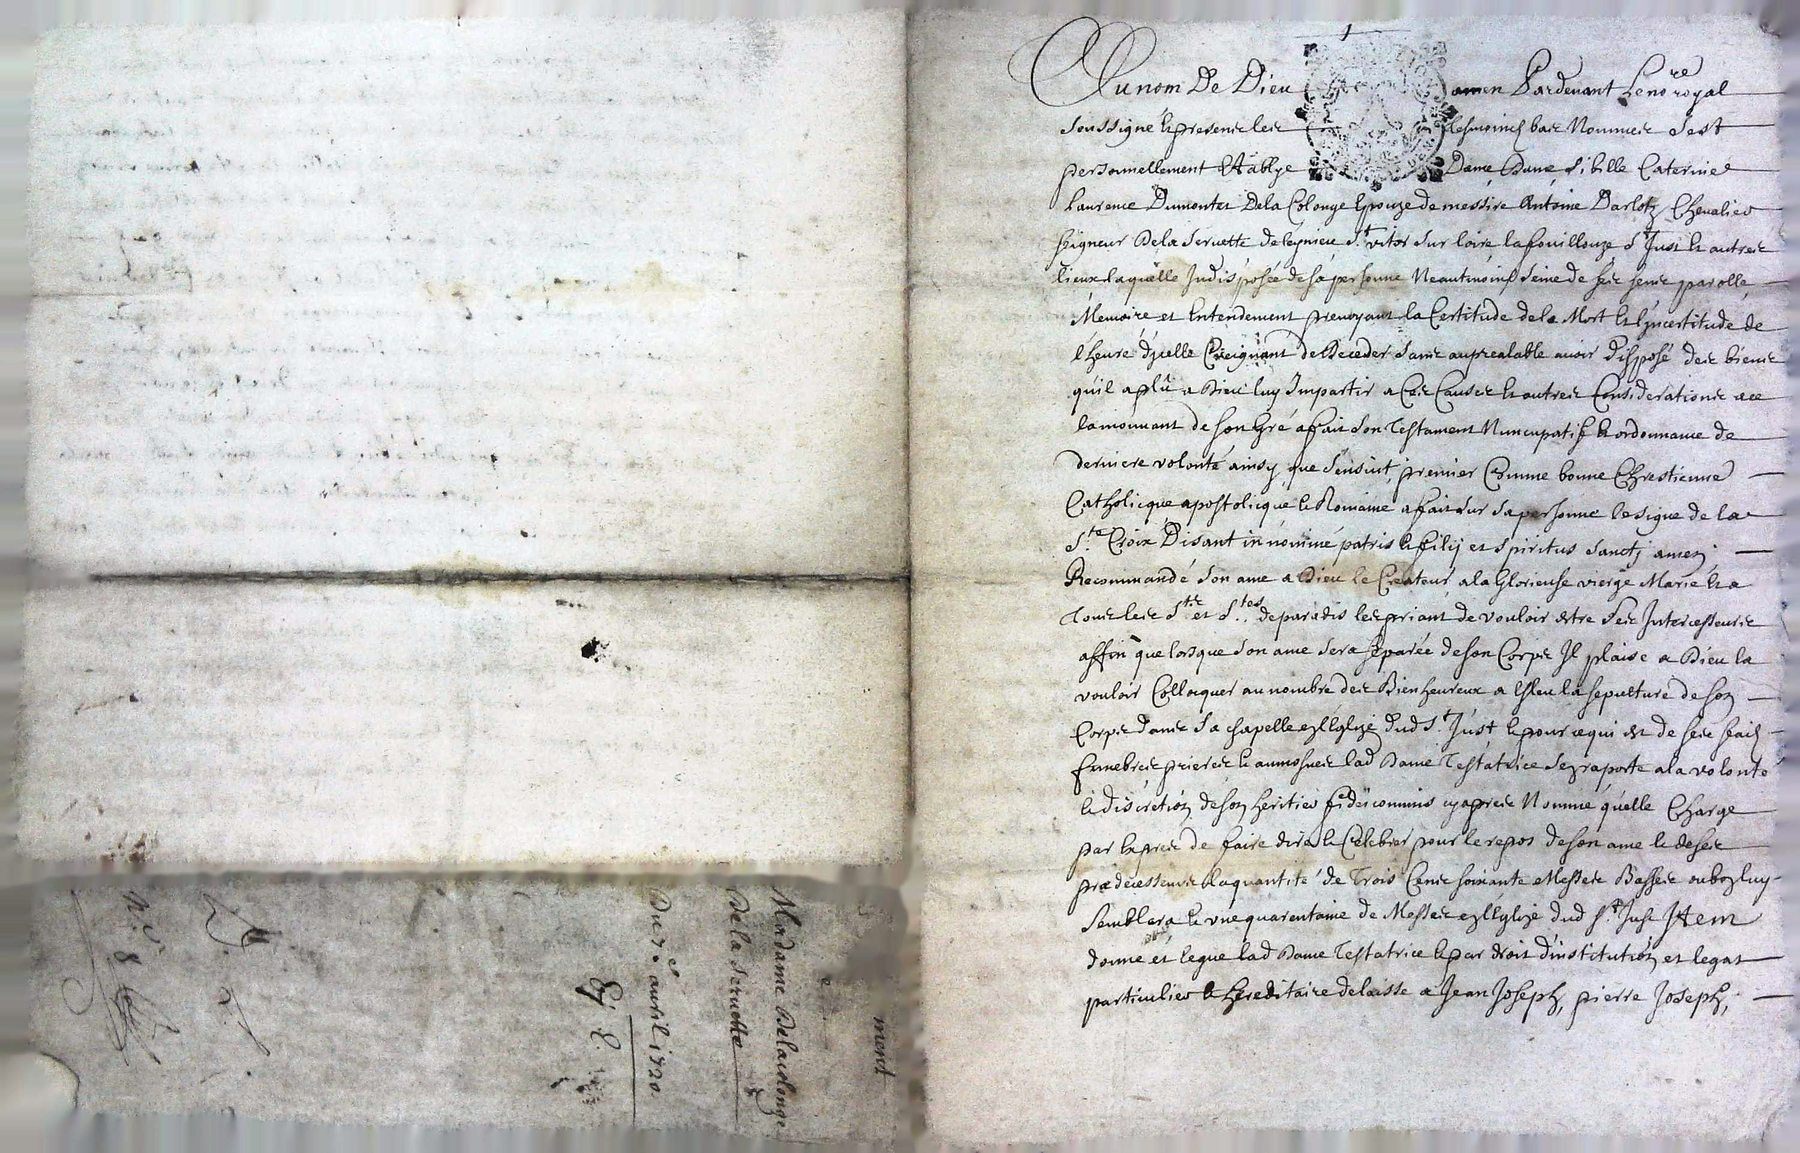 Au nom De Dieu amen Pardevant Le no.re royal
soussigné et presents les tesmoins bas Nommés s'est
personnellement Etablye Dame Dame Sibille Caterine
Laurence Dumontet De la Colonge Epouze de messire Antoine Darlotz Chevalier
seigneur De la seruette de leynieu S.t vitor sur loire la fouillouze S.t Just et autres
lieux laquelle Indisposée de sa personne Neautmoins seine de ses sens parolle
Mémoire et Entendement prevoyant la Certitude de la Mort et l'incertitude de
l'heure d'ycelle Creignant de Deceder sans aupréalable avoir disposé des biens
qu'il a plû a Dieu luy Impartir a Ces Causes et autres Considerations a ce
la mouvant de son Gré a fait son Testament Nuncupatif et ordonnance de
derniere volonté ainsy que s'ensuit, premier Comme bonne Chrestienne
Catholicque apostolicque et Romaine a fait sur sa personne le signe de la
S.te Croix Disant in nomine patris et filij et spiritus sanctj amen;
Recommandé son ame a Dieu le Createur a la Glorieuse vierge Marie et a
Tous les S.ts et S.tes de paradis les priant de vouloir estre ses Intercesseurs
affin que lorsque son ame sera séparée de son Corps Il plaise a Dieu la
vouloir Collocquer au nombre des Bienheureux a Esleu la sepulture de son
Corps dans sa chapelle en l'Eglize dud S.t Just et pour ce qui est de ses frais
funebres prieres et aumosnes lad Dame Testatrice s'en raporte a la volonté
et discretion de son heritier fideicommis cy apres Nommé qu'elle Charge
par Exprès de faire dire et Celebrer pour le repos de son ame et de ses
prædecesseurs la quantité de Trois Cens soixante Messes Basses ou bon luy
semblera et vne quarentaine de Messes en l'Eglize dud S.t Just Item
donne et legue lad Dame Testatrice et par droit d'institution et legat
particulier et hereditaire delaisse a Jean Joseph, pierre Joseph,
ment
Madame De la Colonge
De la seruette
Du avril 1720
N.o 8